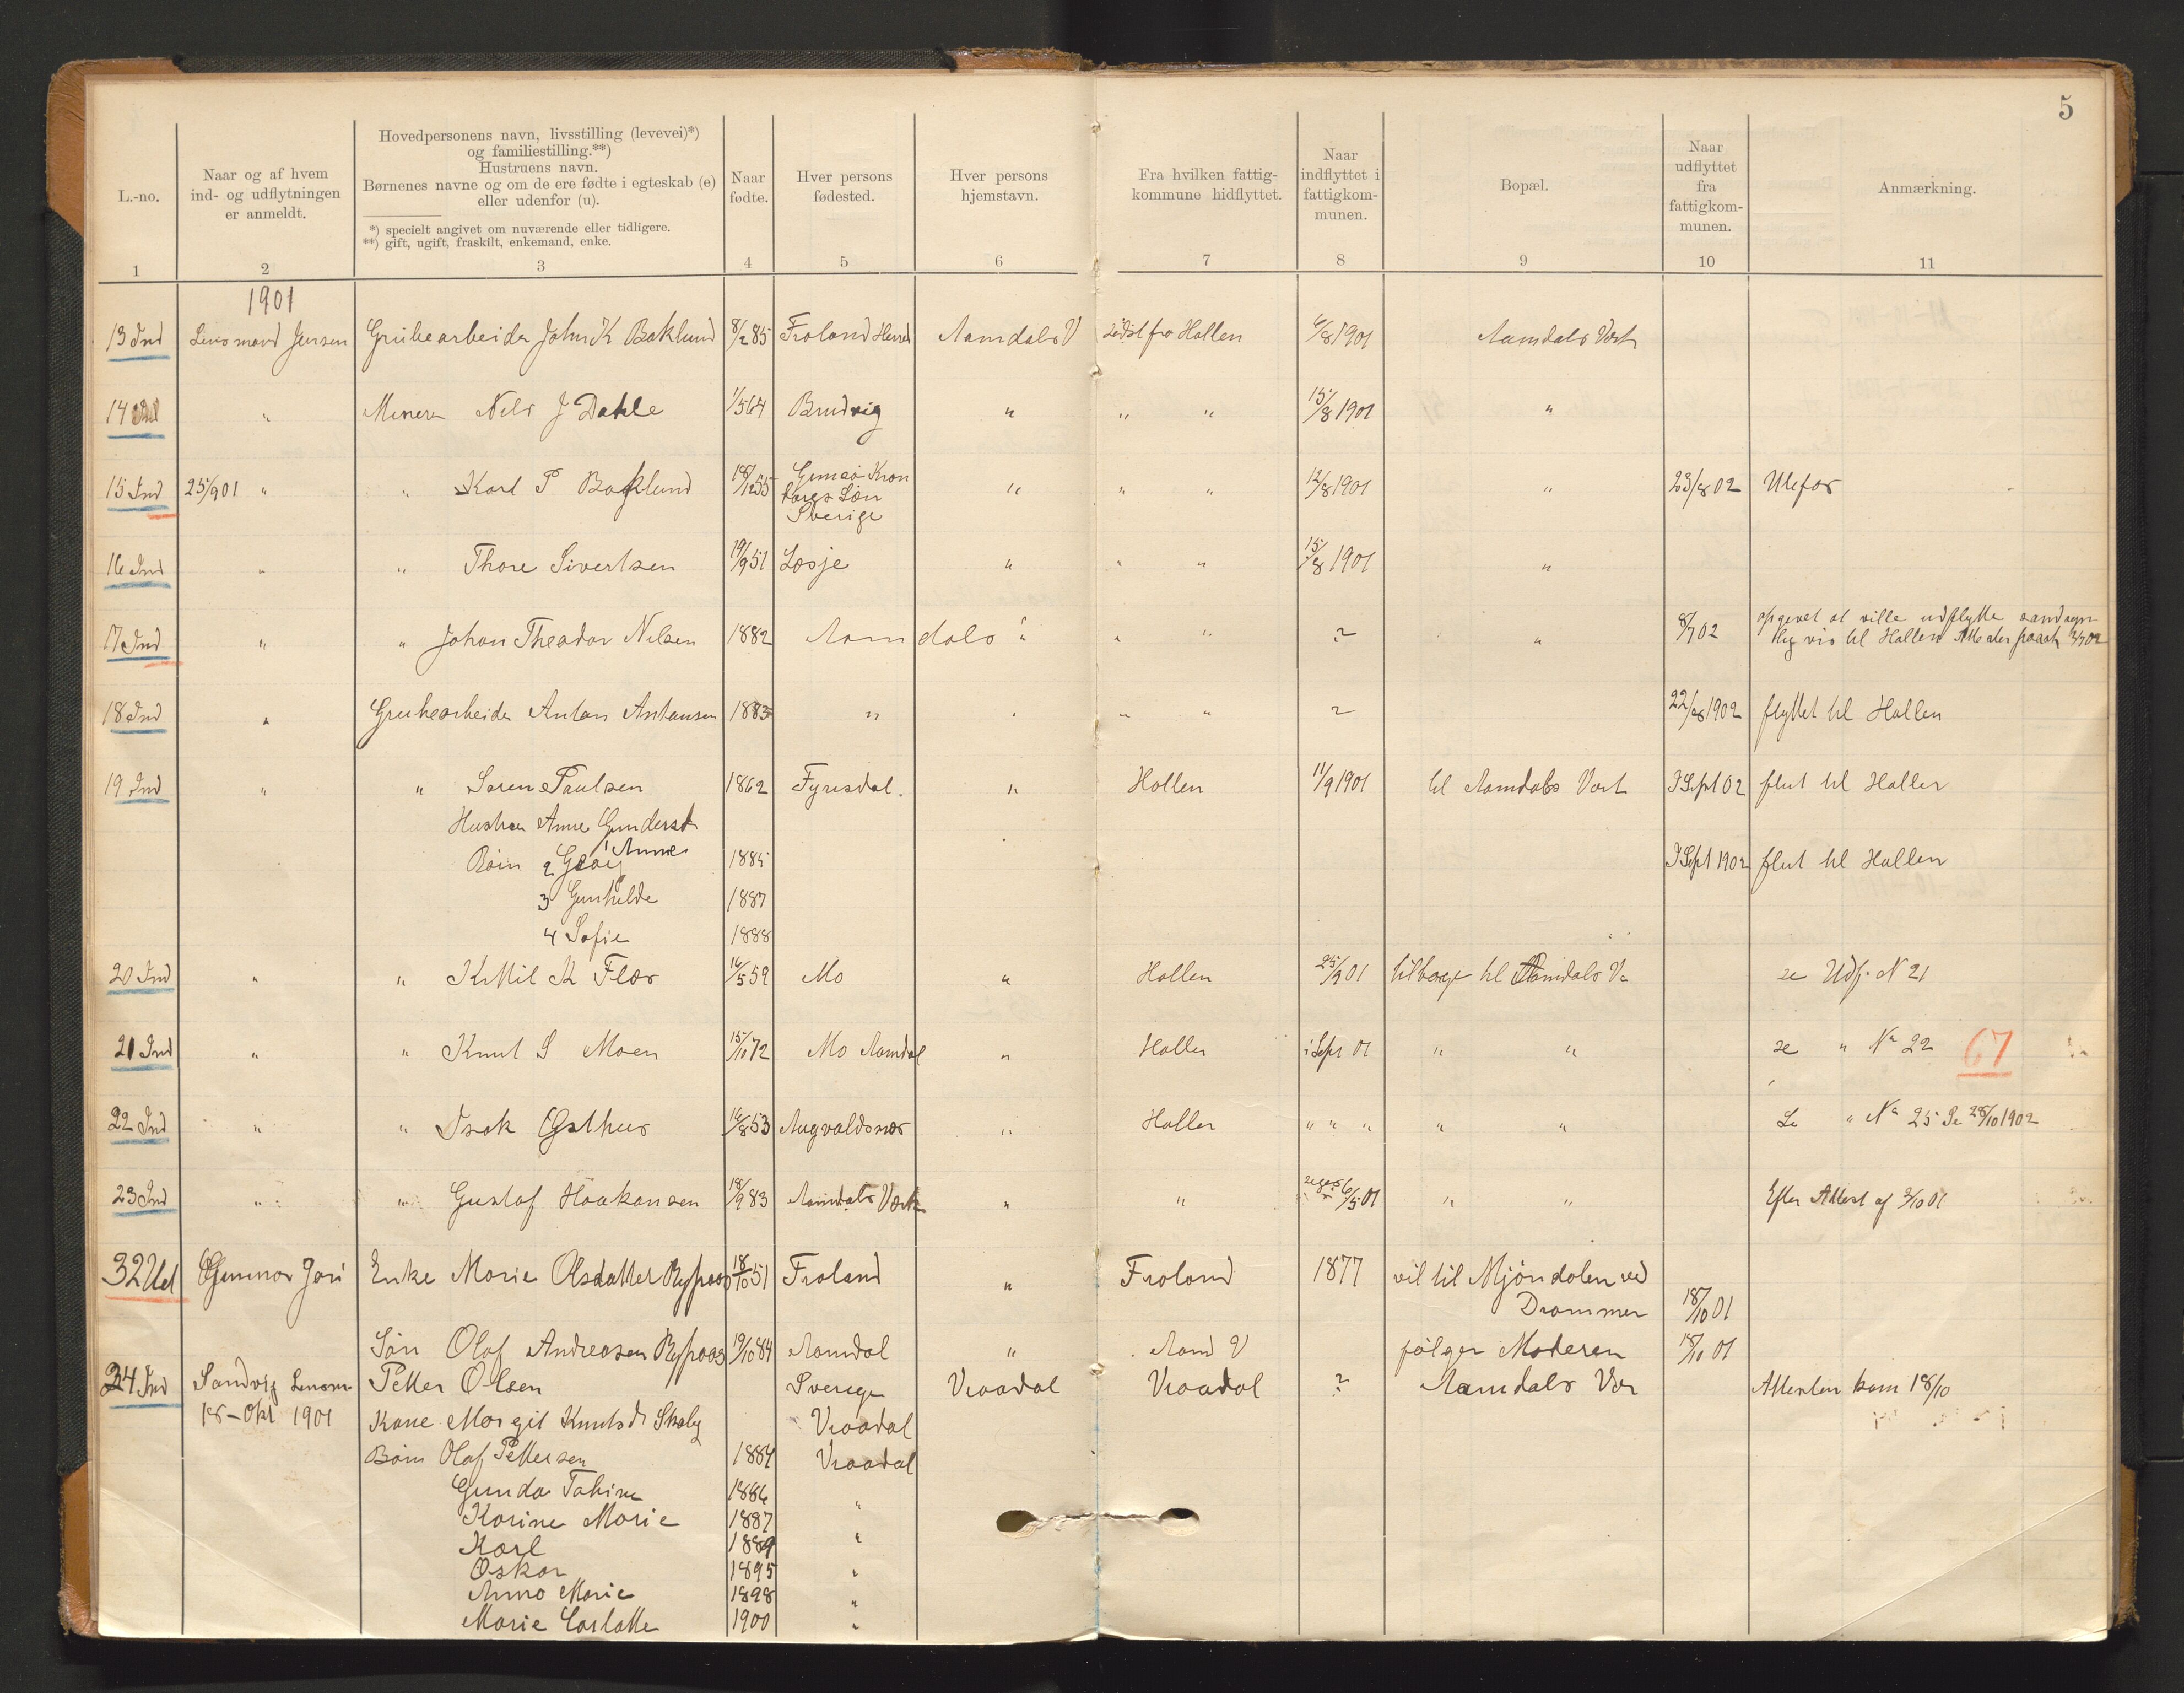 5
L.-no.
Naar og af hvem
ind- og udflytningen
er anmeldt.
Hovedpersonens navn, livsstilling (levevei)*)
og familiestilling.**)
Hustruens navn.
Børnenes navne og om de ere fødte i egteskab (e)
eller udenfor (u).
*) specielt angivet om nuværende eller tidligere.
**) gift, ugift, fraskilt, enkemand, enke.
Naar
fødte.
Hver persons
fødested.
Hver persons
hjemstavn.
Fra hvilken fattig-
kommune hidflyttet.
Naar
indflyttet i
fattigkom-
munen.
Bopæl.
Naar
udflyttet
fra
fattigkom-
munen.
Anmærkning.
1 2 3 4 5 6 7 8 9 10 11
1901
13 Ind Lensmand Jensen Grubearbeider John K Baklund 8/2 85 Froland Herred Aamdals V sidst fra Hollen 6/8 1901 Aamdals Værk
14 Ind " Minerer Nils J Dahle 1/5 64 Bruvig " " " 15/8 1901 "
15 Ind 25/9 01 " " Karl P Baklund 18/12 55 " " " 12/8 1901 " 23/8 02 Ulefos
Sverige
16 Ind " " Thore Sivertsen 19/9 51 Lesje " " " 15/8 1901 "
17 Ind " " Johan Theodor Nilsen 1882 Aamdals " " " ? " 8/7 02 opgevet at ville udflytte sandsyn
lig vis til Hollen
18 Ind " Grubearbeider Anton Antonsen 1883 " " " " ? 22/8 1902 flyttet til Hollen
19 Ind " " Søren Paulsen 1862 Fyresdal. " Hollen 11/9 1901 til Aamdals Værk I Sept 02 flut til Hollen
Hustru Anne Gundersd
1 Anne
Børn 2 1885 I Sept 1902 flut til Hollen
3 Gunhilde 1887
4 Sofie 1888
20 Ind " " Kittil K Flor 16/5 59 Mo " Hollen 25/9 01 tilbage til Aamdals V. se Udf. N 21
21 Ind " " Knut S Moen 15/10 72 Mo Aamdal " Hollen i Sept 01 " " se " No 22 67
22 Ind " " Isak Østhus 16/8 53 Augvaldsnes " Hollen " " " " " Se " No 25 Se 28/10 1902
23 Ind " " Gustaf Håakansen 18/9 83 Aamdals Værk " " 6/5 01 " " Efter Attest af 3/10 01
32 Ud Gunnar Jore Enke Marie Olsdatter Rypaas 18/10 51 Froland " Froland 1877 vil til Mjøndalen ved
Drammen 18/10 01
Søn Olaf Andreasen Rypaas 19/10 84 Aamdal " Aamd V følger Moderen 18/10 01
24 Ind Sandvig Lensm Petter Olsen Sverige Vraadal Vraadal ? Aamdals Vær Attesten kom 18/10
18-Okt 1901 Kone Margit Knutsd Skaly Vraadal
Børn Olaf Pettersen 1884 Vraadal
Gunda Tomine 1886 "
Karine Marie 1887
Karl 1889 "
Oskar 1895 "
Anna Marie 1898 "
Marie Carlotte 1900 "